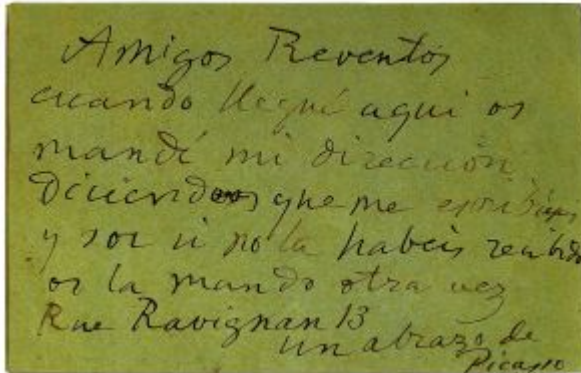 Amigos Reventos
cuando llegué aqui os
mandé mi dirección
diciendoos que me escribierais
y por si no la habeis recibido
os la mando otra vez
Rue Ravignan 13
un abrazo de
Picasso